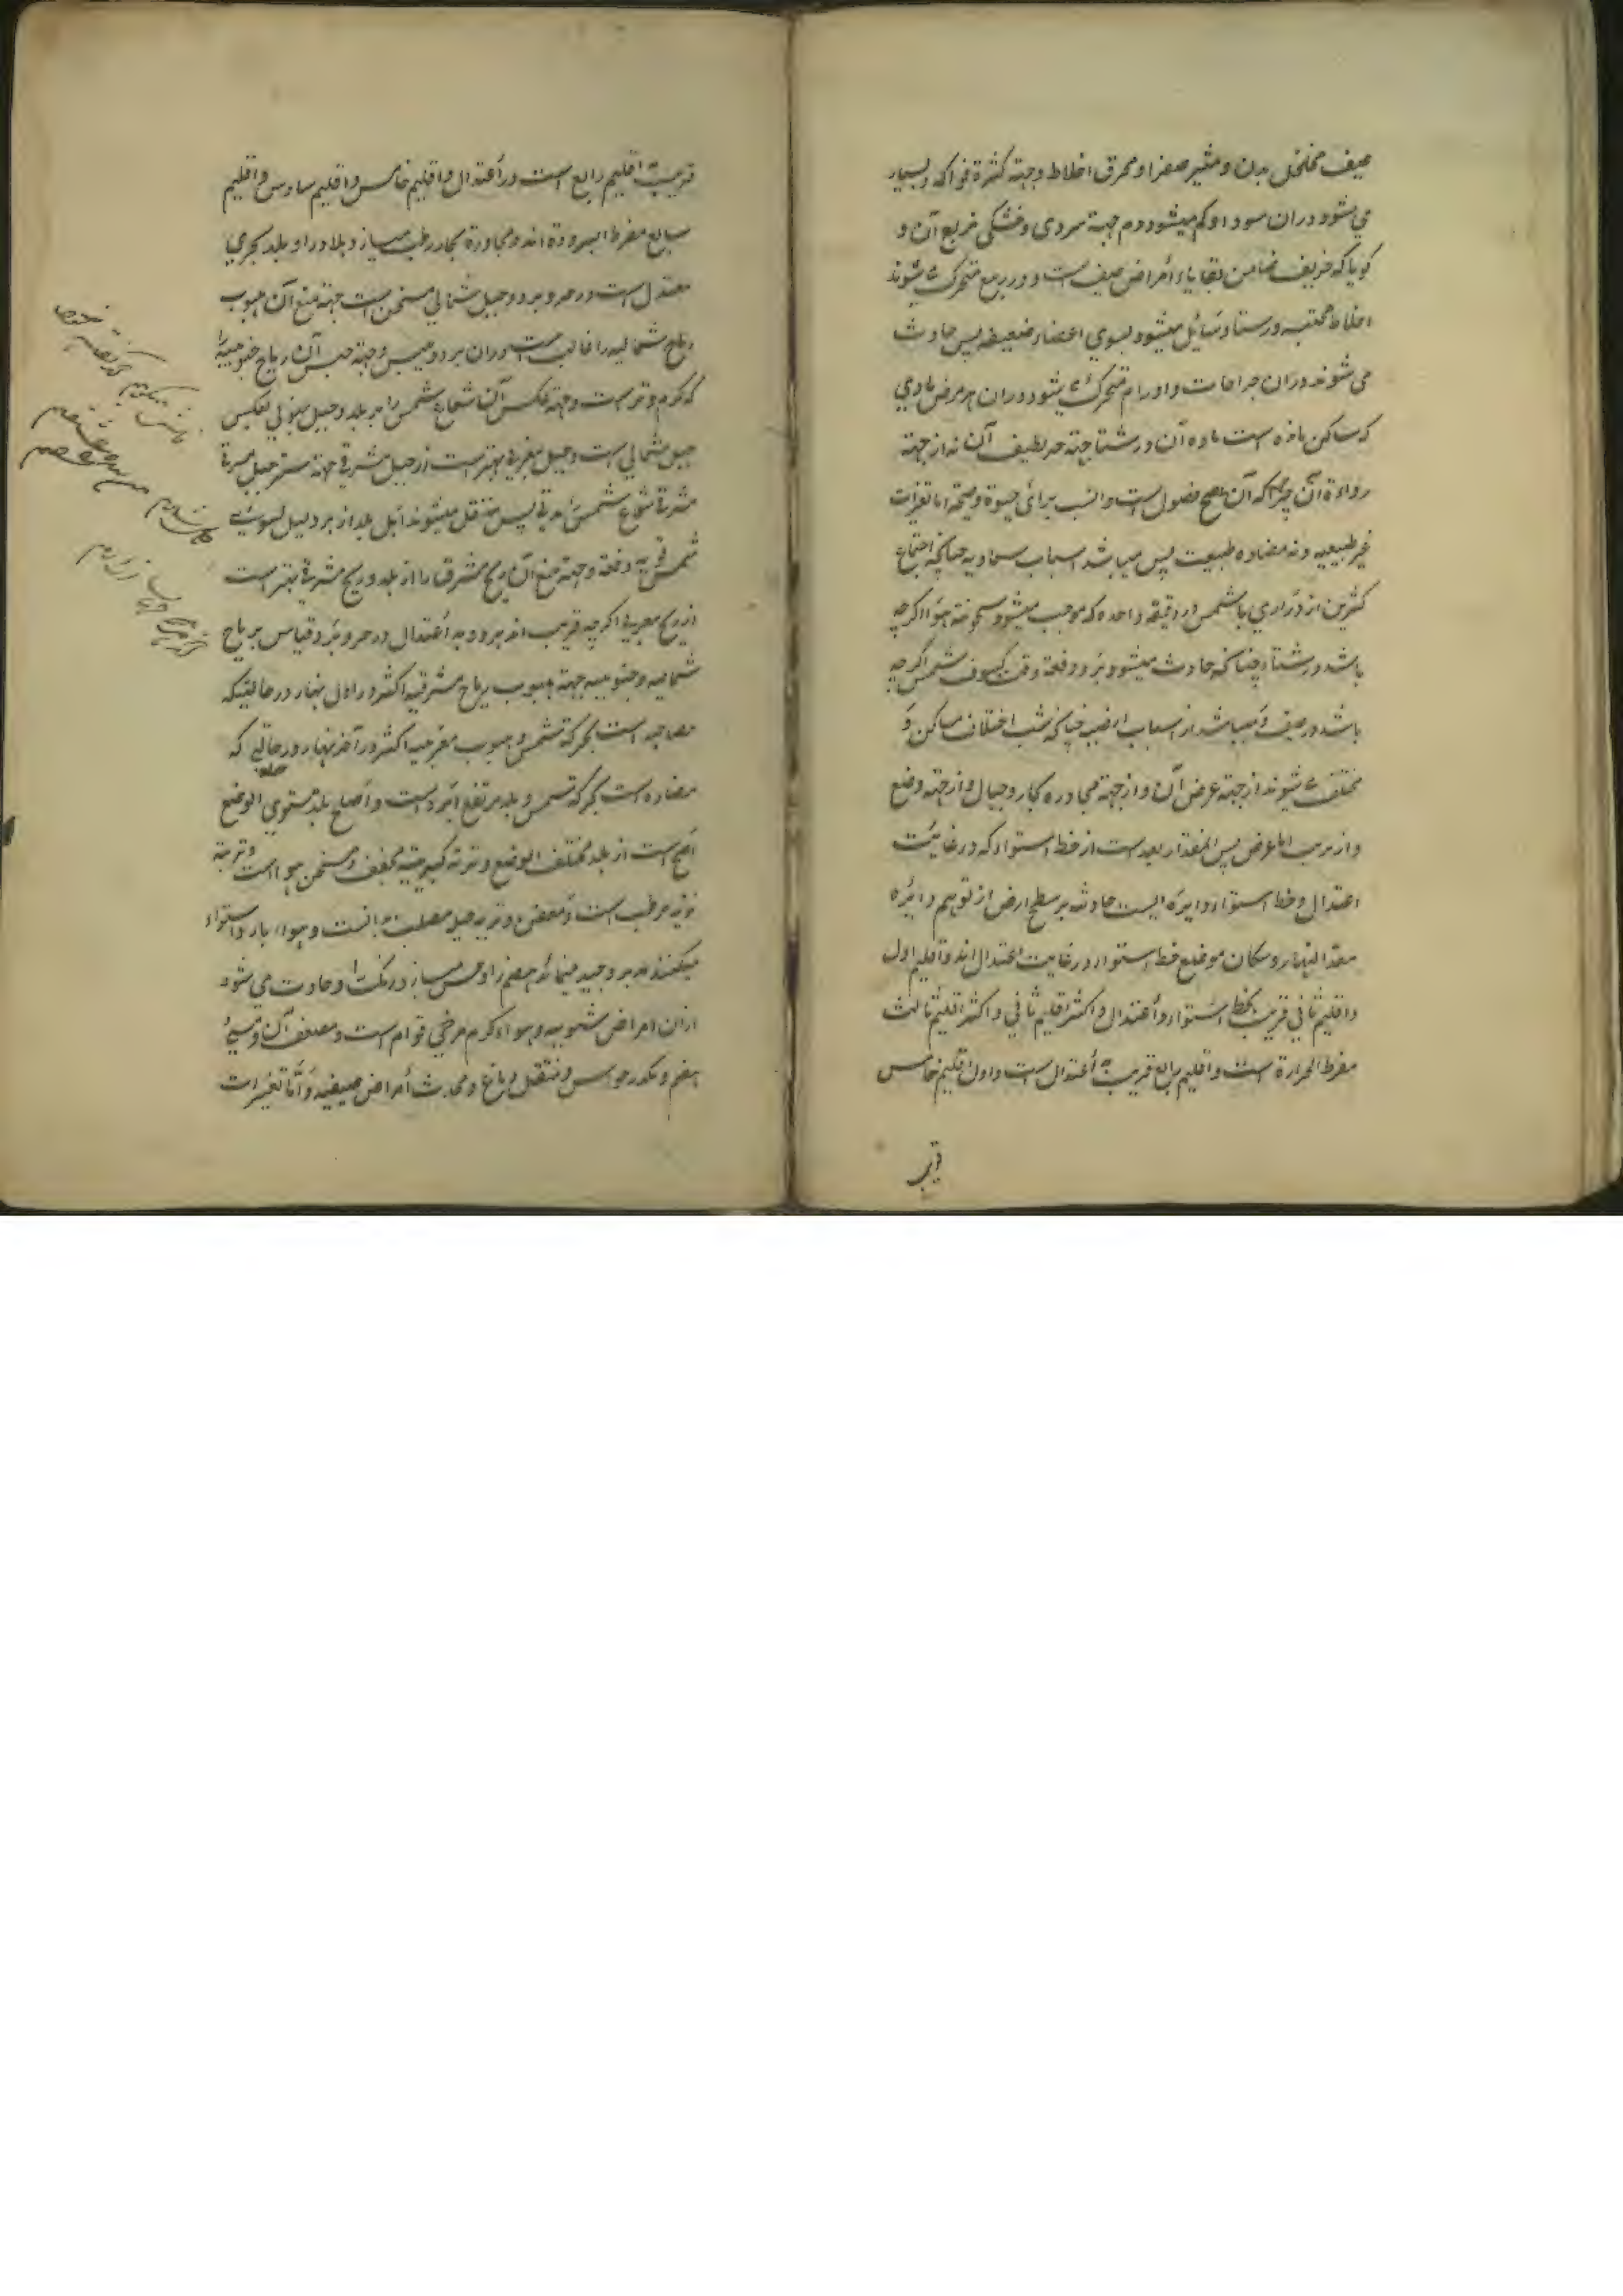 صیف مخلخل بدن و مثیر صفرا و محرق اخلاط و جهته کثرة فواکه و بسیار
می شود دران سودا و کم میشود دم جهته سردی و خشکی مزیع آن و
کویا که خریف ضامن بقایاء أمراض صیف است و در ربیع متحرک میشوند
اخلاط محتبسه در ستا و سایل میشود بسوی اعضاء ضعیفه پس حادث
می شوند دران جراحات و اورام و متحرک میشود دران هر مرض مادی
که ساکن بوده است ماده آن در شتا جهته حر لطیف آن نه از جهته
رداءة آن چراکه آن اصح فصول است و انسب برای حیوة و صحة اما تغیرات
غیر طبیعیه و نه مضاده طبیعت پس میباشد اسباب سماویه چنانچه اجتماع
کثرین از دراری با شمس در دقیقه واحده که موجب میشود سخونته هوا اکرچه
باشد در شتا و چنانکه حادث میشود برد دفعة وقت کسوف شمس اکرچه
باشد در صیف و میباشد از اسباب ارضیه چنانکه شب اختلاف مساکن و
مختلف میشوند از جهته عرض آن و از جهته مجاوره بحار و جبال و از جهته وضع
و از تربت اما عرض پس بمقدار بعد است از خط استواء که در غایت
اعتدال و خط استواء دایره ایست حادثه بر سطح ارض از توهم دایره
معدل النهار و سکان موضع خط استواء در غایت اعتدال اند و اقلیم اول
و اقلیم ثانی قریب بخط استواء و أعتدال و اکثر اقلیم ثانی و اکثر اقلیم ثالث
مفرط الحرارة است و اقلیم رابع قریب به أعتدال است و اول اقلیم خامس
قریب
قریب اقلیم رابع است در أعتدال و اقلیم خامس و اقلیم سادس و اقلیم
سابع مفرط البرودة اند و مجاورة بحار رطب میسازد بلاد را و بلد بحری
معتدل است در حر و برد و جبل شمالی مسخن است جهته منع آن هبوب
ریاح شمالیه را غالب است دران برد و یبس و جهته حبس آن ریاح جنوبیه را
که کرم و تر است و جهته عکس آن شعاع شمس را بر بلد و جبل جنوبی بعکس
جبل شمالی است و جبل مغربی بهتر است از جبل مشرقی جهته ستر جبل مشرقی
مشرقی شعاع شمس مدتی پس منتقل میشوند اهل بلد از برد لیل بسوی
شمس قویه دفعة و جهته منع آن ریح مشرق را از بلد و ریح مشرقی بهتر است
از ریح مغربی اکرچه قریب اند هر دو به أعتدال در حر و برد و قیاس بر ریاح
شمالیه و جنوبیه جهته هبوب ریاح مشرقیه اکثر در اول نهار در حالتیکه
مصاحبه است بحرکة شمس و هبوب مغربیه اکثر در آخر نهار در حالتی که
مضاده است بحرکة شمس و بلد مرتفع ابرد است و أصلح بلد مستوی الوضع
أصح است از بلد مختلف الوضع و تربه کبریتیه مجفف و مسخن هوا است و تربة
نزیه مرطب است و معفن و تربه جبل مصلب بدانست و هوا بارد استواء
میکند بدن و جید مینماید هضم را و حسن میسازد رنکت را و حادث می شود
ازان امراض شعبیه و هواء کرم مرخی قوام است و مضعف آن و مسیء
هضم و مکدر حواس و مثقل دماغ و محدث أمراض صیفیه و أما تغیرات